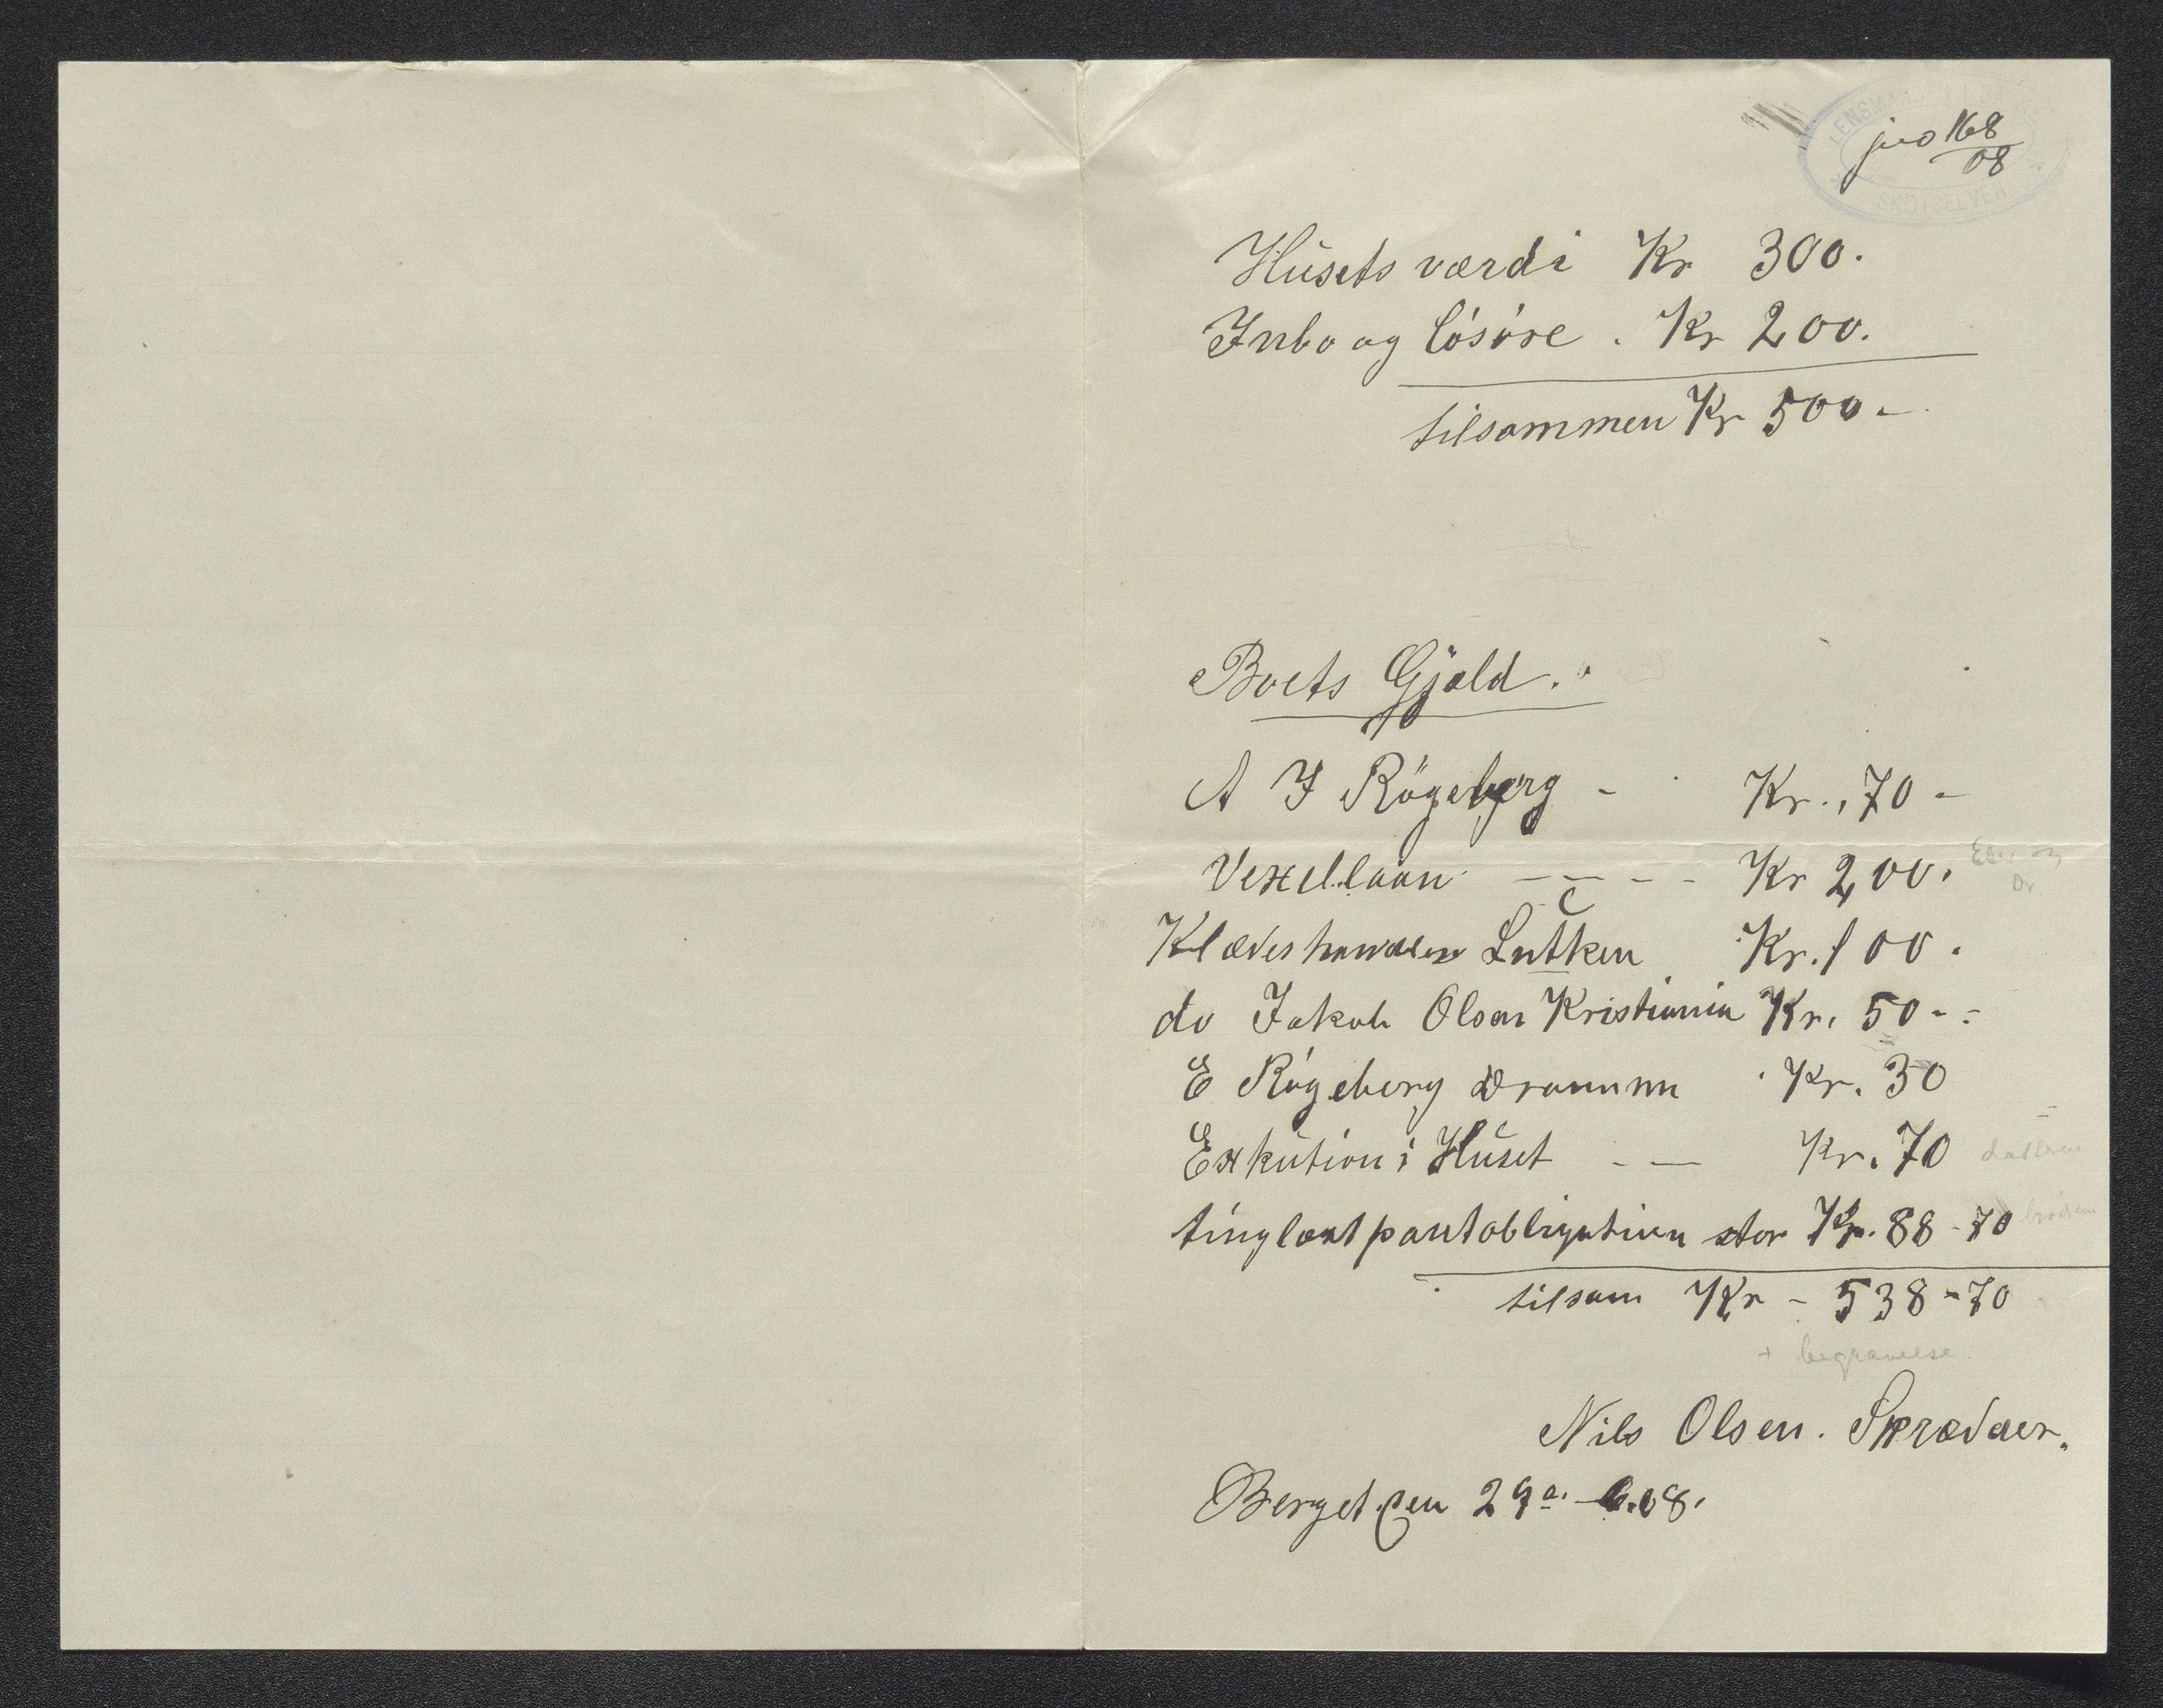 LENSMANDEN
SKOTSELVEN
jno 168/08
Husets værdi Kr 300.
Inbo og lösöre . Kr 200.
tilsammen Kr 500 -
Boets Gjæld.
A J Rögeberg - Kr. 70 -
Vexellaan - - - - Kr 200.
Klædeshandler Lutken Kr. 100.
do Jakob Olsen Kristiania Kr. 50 - -
E Rögeberg Drammen Kr. 30
Exkution i Huset - - Kr. 70
tinglæst pantobligation stor Kr. 88 - 70
tilsam Kr - 538 - 70
+ begravelse
Nils Olsen. Skrædder.
Berget den 29 - 6. 08.